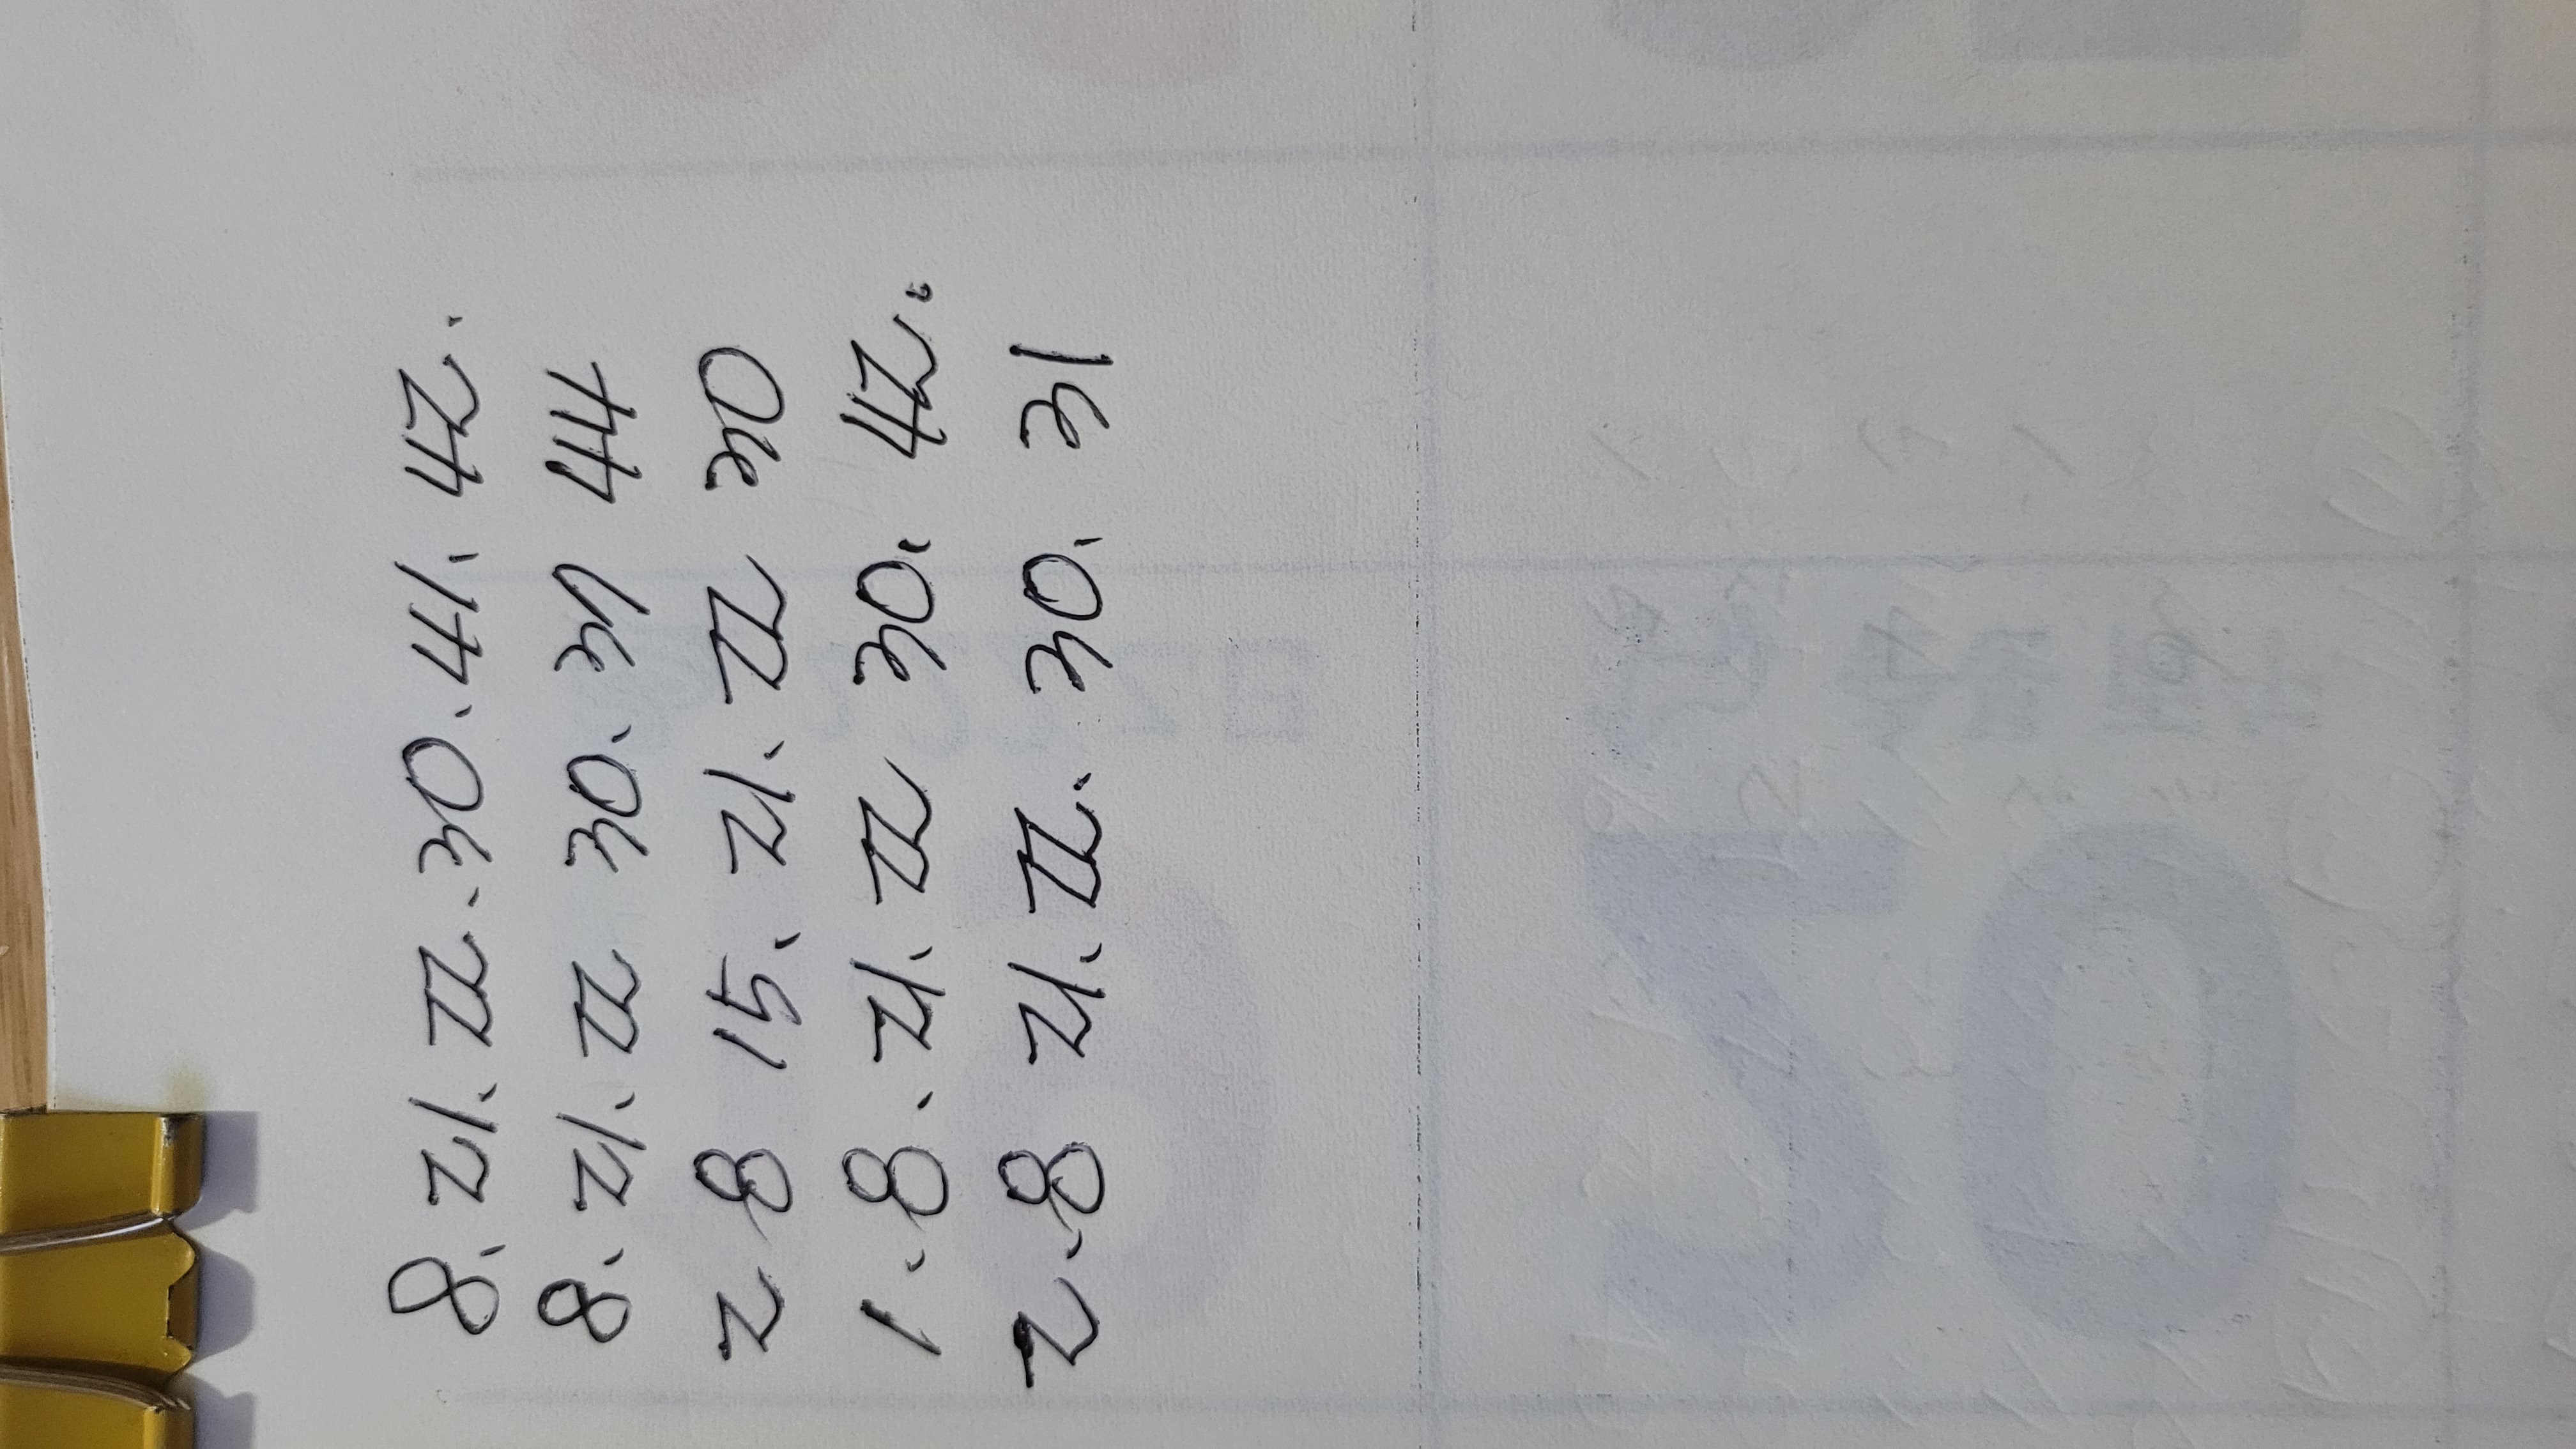 8. 21. 22. 30. 41. 42.
8. 21. 22 30. 44
2 8 15. 21. 22 30
1. 8. 21. 22 30. 42.
2. 8 21. 22. 30. 31